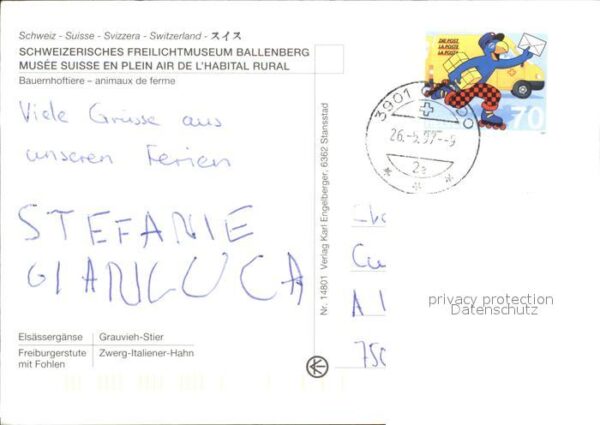 Schweiz - Suisse - Svizzera - Switzerland - スイス
SCHWEIZERISCHES FREILICHTMUSEUM BALLENBERG
MUSÉE SUISSE EN PLEIN AIR DE L'HABITAL RURAL
Bauernhoftiere – animaux de ferme
Viele Grüsse aus
unseren Ferien
STEFANIE
GIANLUCA
Elsässergänse
Grauvieh-Stier
Freiburgerstute
mit Fohlen
Zwerg-Italiener-Hahn
Nr. 14801 Verlag Karl Engelberger, 6362 Stansstad
DIE POST
LA POSTE
LA POSTA
70
3901
26.-5.97--9
2a
A
750
privacy protection
Datenschutz